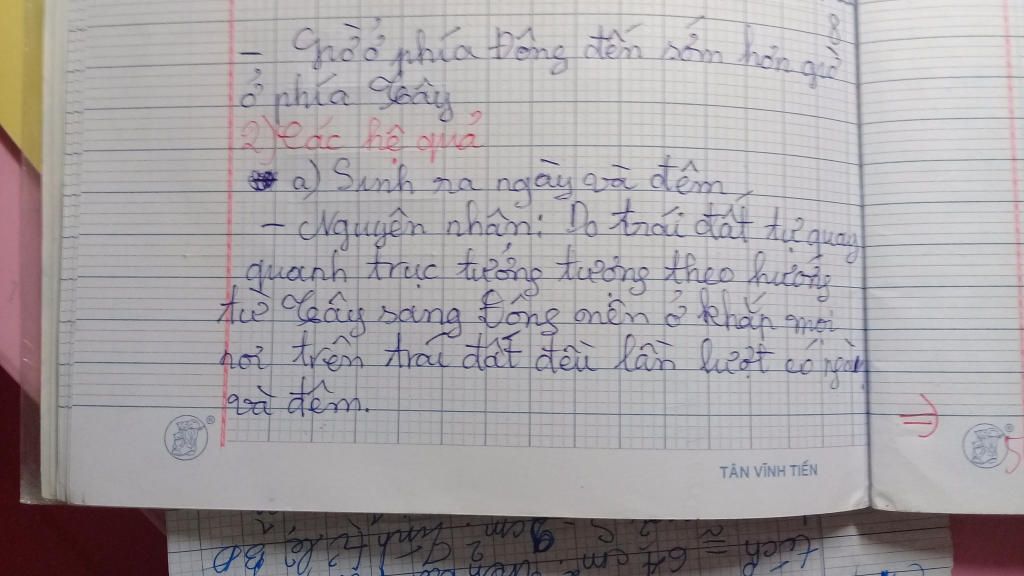 8
- Giờ ở phía Đông đến sớm hơn giờ
ở phía Tây
2) Các hệ quả
a) Sinh ra ngày và đêm
- Nguyên nhân: Do trái đất tự quay
quanh trục tưởng tượng theo hướng
từ Tây sang Đông nên ở khắp mọi
nơi trên trái đất đều lần lượt có ngày
và đêm.
⇒
5
TÂN VĨNH TIẾN